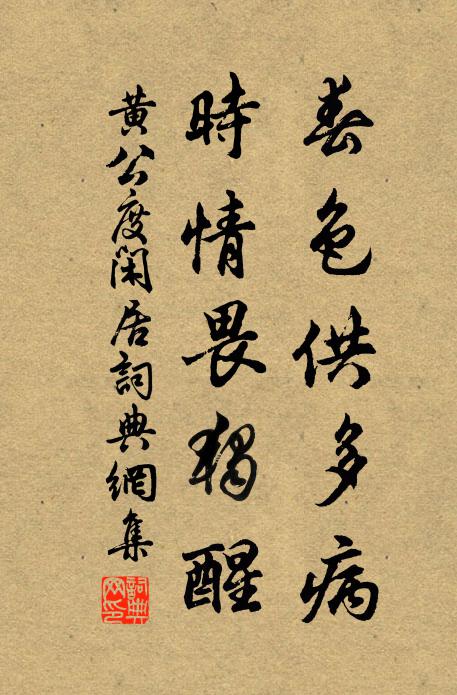 春色供多病
時情畏獨醒
黃公度閑居詞典網集
詞典網印